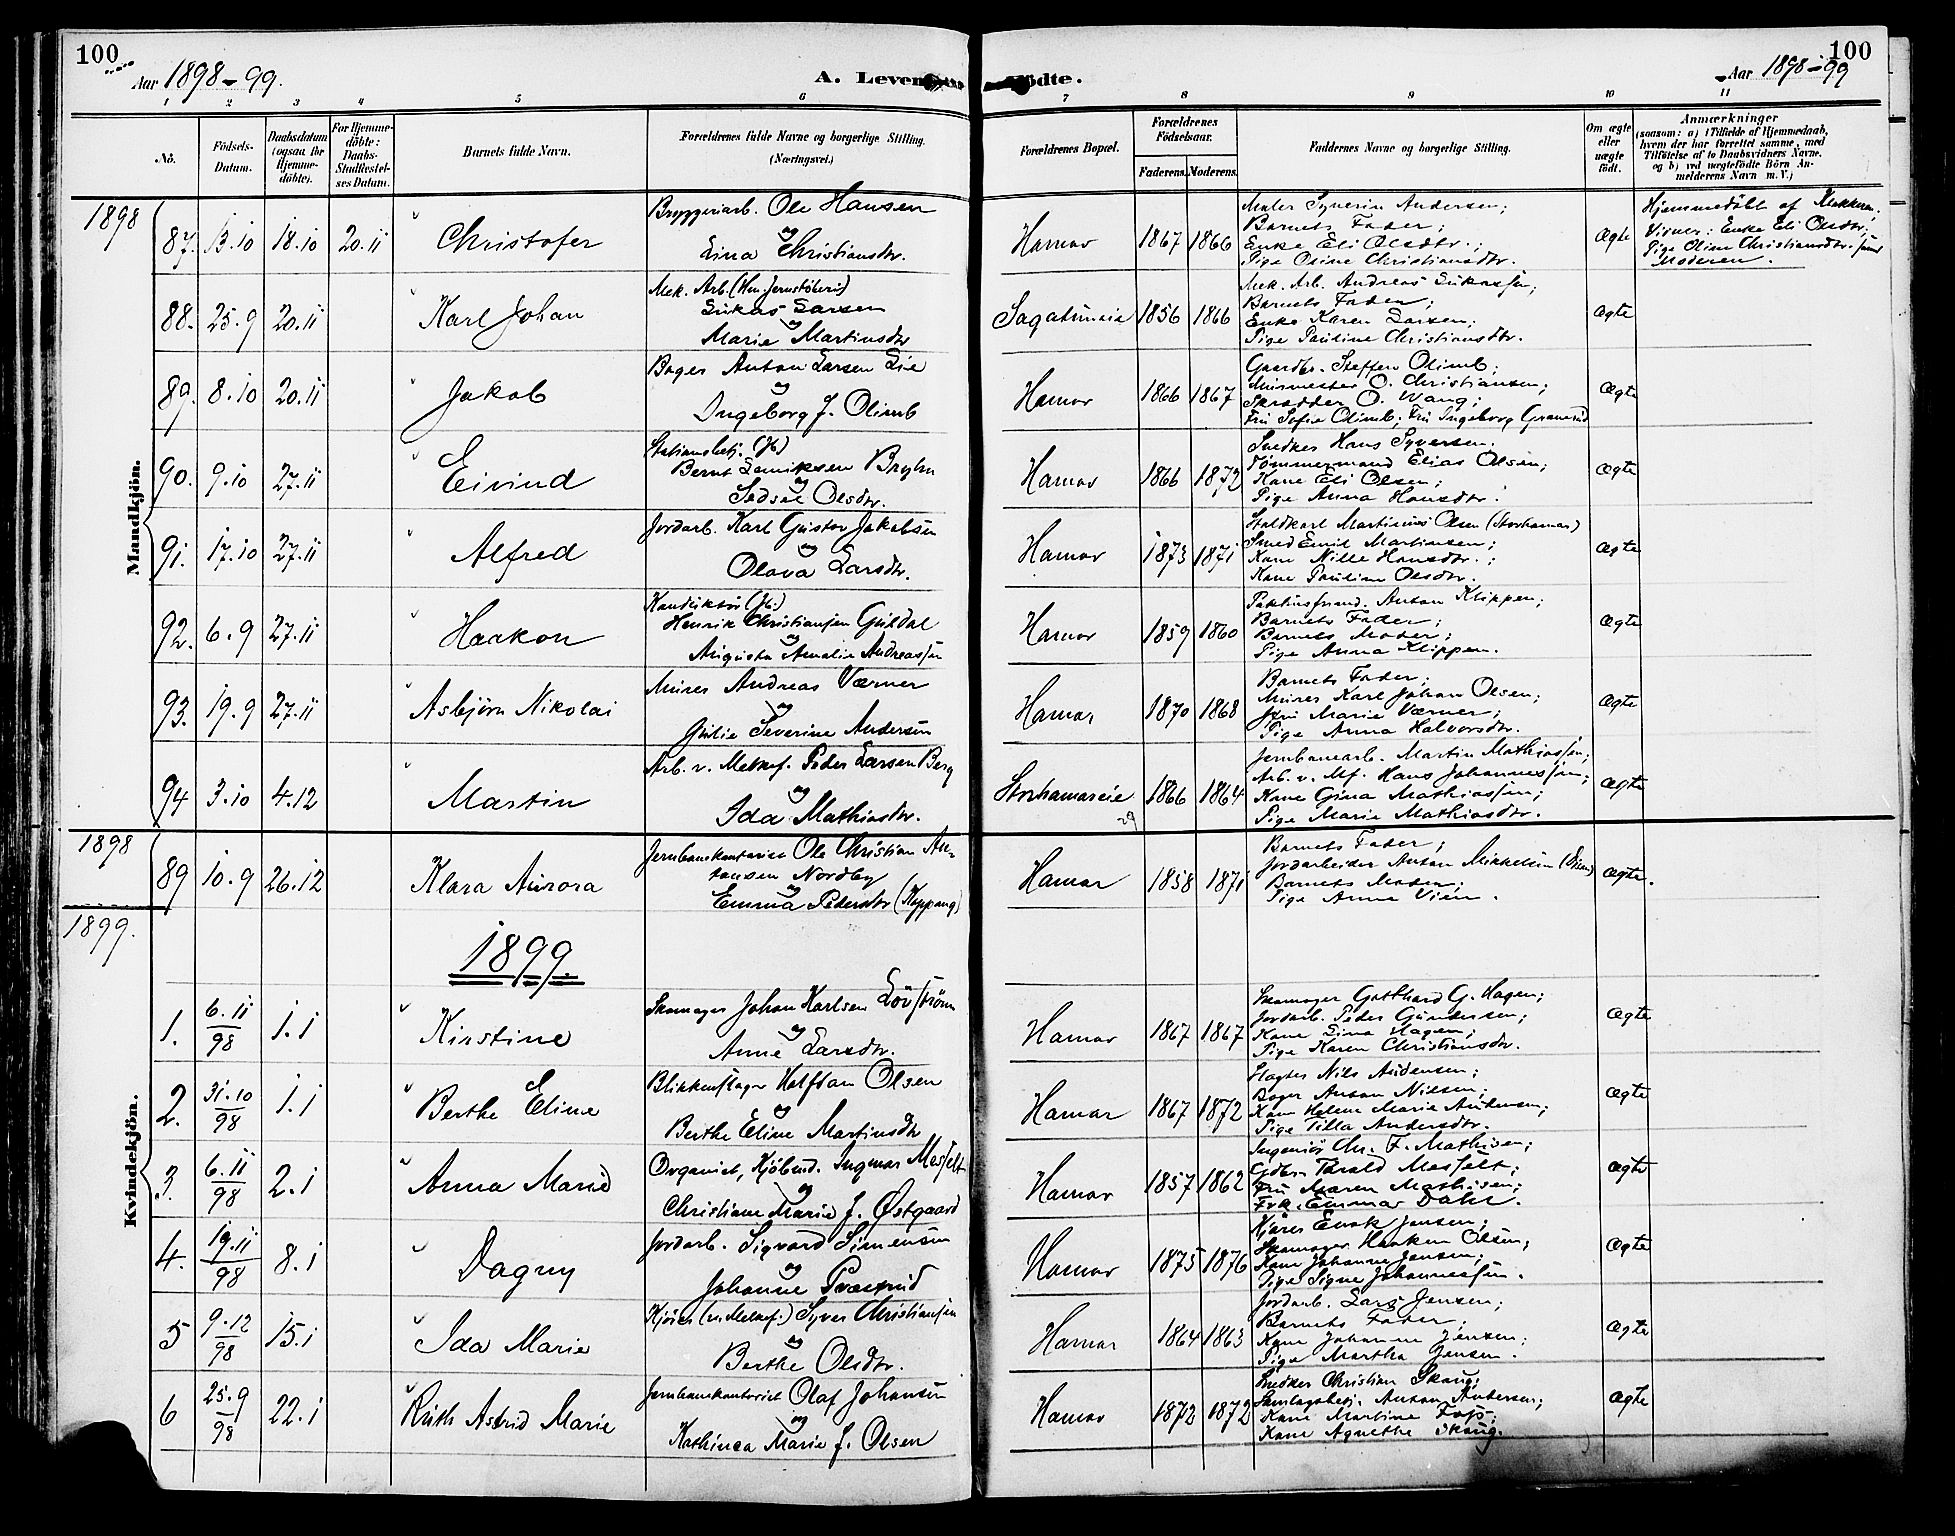 100
Aar 1898-99.
A. Levende
fødte.
Aar 1898-99
100
1 2 3 4 5 6 7 8 9 10 11
No.
Fødsels-Datum.
Daabsdatum (ogsaa for Hjemme-døbte).
For Hjemme-døbte: Daabs-Stadfæstel-ses Datum.
Barnets fulde Navn.
Forældrenes fulde Navne og borgerlige Stilling. (Næringsvei.)
Forældrenes Bopæl.
Forældrenes Fødselsaar.
Faderens. Moderens.
Faddernes Navne og borgerlige Stilling.
Om ægte eller uægte født.
Anmærkninger
(saasom: a) i Tilfælde af Hjemmedaab, hvem der har forrettet samme, med Tilføielse af to Daabsvidners Navne, og b) ved uægtefødte Børn An-melderens Navn m. V.)
Mandkjøn.
1898
87. 13.10 18.10 20.11 Christofer
Bryggeriarb. Ole Hansen
og
Lina Christiansdtr.
Hamar 1867 1866
Maler Syverin Andersen;
Barnets Fader;
Enke Eli Olsdtr.;
Pige Oline Christiansdtr.
Ægte
Hjemmedøbt af
Vidner: Enke Eli Olsdtr.;
Pige Oline Christiansdtr. samt
Moderen.
88. 25.9 20.11 Karl Johan
Mek. Arb. (Ham. Jernstøberi)
Lukas Larsen
og
Marie Martinsdtr
Sagatuneie 1856 1866
Mek. Arb. Andreas Lukassen;
Barnets Fader;
Enke Karen Larsen;
Pige Pauline Christiansdtr.
Ægte
89. 8.10 20.11 Jakob
Bager Anton Larsen Lie
og
Ingeborg f. Olimb
Hamar 1866 1867
Gaardbr. Steffen Olimb;
Murmester O. Christiansen;
Skrædder O. Wang;
Fru Sofie Olimb; Fru Ingeborg
Ægte
90. 9.10 27.11 Eivind
Stationsbetj. (H.)
Bernt Bryhn
og
Olsdtr.
Hamar 1866 1872
Snedker Hans Syversen.
Tømmermand Elias Olsen;
Kone Eli Olsen;
Pige Anna Hansdtr.
Ægte
91. 17.10 27.11 Alfred
Jordarb. Karl Gustav Jakobsen
og
Olava Larsdtr.
Hamar 1873 1871
Staldkarl Martinus Olsen (Storhamar)
Smed Emil Martinsen;
Kone Nille Hansdtr.;
Kone Pauline Olsdtr.
Ægte
92. 6.9 27.11 Haakon
Konduktør (H.)
Henrik Christiansen Guldal
og
Augusta Amalie Andreassen
Hamar 1859 1860
Pakhusformd. Anton Klippen;
Barnets Fader;
Barnets Moder;
Pige Anna Klippen.
Ægte
93. 19.9 27.11 Asbjørn Nikolai
Murer Andreas Værner
og
Gulie Severine Andersen
Hamar 1870 1868
Barnets Fader;
Murer Karl Johan Olsen;
Fru Marie Værner;
Pige Anna Halvorsdtr.
Ægte
94 3.10 4.12 Martin
Arb. v. Melkef. Peder Larsen Berg
og
Ida Mathiasdtr.
Storhamareie 1866 1864
29
Jernbanearb. Martin Mathiassen;
Arb. v. Mf. Hans Johannessen;
Kone Gina Mathiassen;
Pige Marie Mathiasdtr.
Ægte
1898
89 10.9 26.12 Klara Aurora
Jernbanekontorist Ole Christian An-
tonsen Nordby
og
Emma Pedersdtr (Koppang)
Hamar 1858 1871
Barnets Fader;
Jordarbeider Anton Mikkelsen
Barnets Moder;
Pige Anna Vien.
Ægte.
1899.
1899.
Kvindekjøn.
1. 6.11/98 1.1 Kirstine
Skomager Johan Karlsen Løvstrøm
og
Anne Larsdtr.
Hamar 1867 1867
Skomager Gotthard G. Hagen;
Jordarb. Peder Gundersen;
Kone Lina Hagen;
Pige Karen Christiansdtr.
Ægte
2. 31.10/98 1.1 Berthe Eline
Blikkenslager Halfdan Olsen
og
Berthe Eline Martinsdtr
Hamar 1867 1872
Slagter Nils Andersen;
Bager Anton Nilsen;
Kone Helene Marie Andersen;
Pige Tilla Andersdtr.
Ægte
3. 6.11/98 2.1 Anna Marie
Organist, Kjøbmd. Ingmar Messelt
og
Christiane Marie f. Østgaard
Hamar 1857 1862
Ingeniør Chr. F. Mathisen;
Gdbr. Tarald Messelt;
Fru Maren Mathisen;
Frk. Emma Dahl.
Ægte
4. 19.11/98 8.1 Dagny
Jordarb. Sigvard Simensen
og
Johanne Præsterud
Hamar 1875 1876
Kjører Enok Jensen;
Skomager Haaken Olsen;
Kone Johanne Jensen;
Pige Signe Johannessen.
Ægte
5 9.12/98 15.1 Ida Marie
Kjører (v. Melkef.) Syver Christiansen
og
Berthe Olsdtr.
Hamar 1864 1863
Jordarb. Lars Jensen;
Barnets Fader;
Kone Johanne Jensen;
Pige Martha Jensen.
Ægte
6 25.9/98 22.1 Ruth Astrid Marie
Jernbanekontorist Olaf Johansen
og
Kathinca Marie f. Olsen
Hamar 1872 1872
Snedker Christian Skaug;
Samlagsbetj. Anton Andersen;
Kone Martine Foss;
Kone Agnethe Skaug.
Ægte